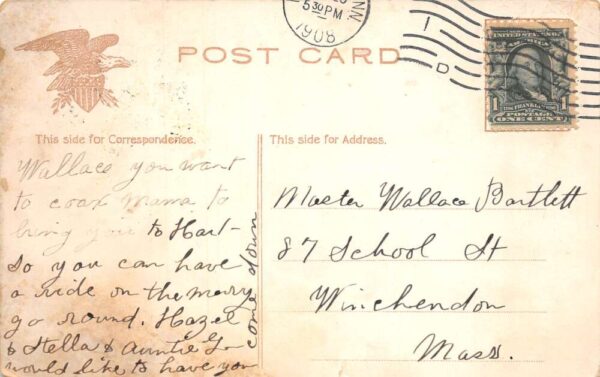 5 30 PM
1908
NN
1
D
POST CARD
UNITED STATES OF
AMERICA
FRANKLIN
1 1
POSTAGE
ONE CENT
This side for Correspondence.
Wallace you want
to coax mama to
bring you to Hart-
so you can have
a ride on the merry
go round. Hazel
& Stella & Auntie G-
would like to have you
come down
This side for Address.
Master Wallace Bartlett
87 School St
Winchendon
Mass.